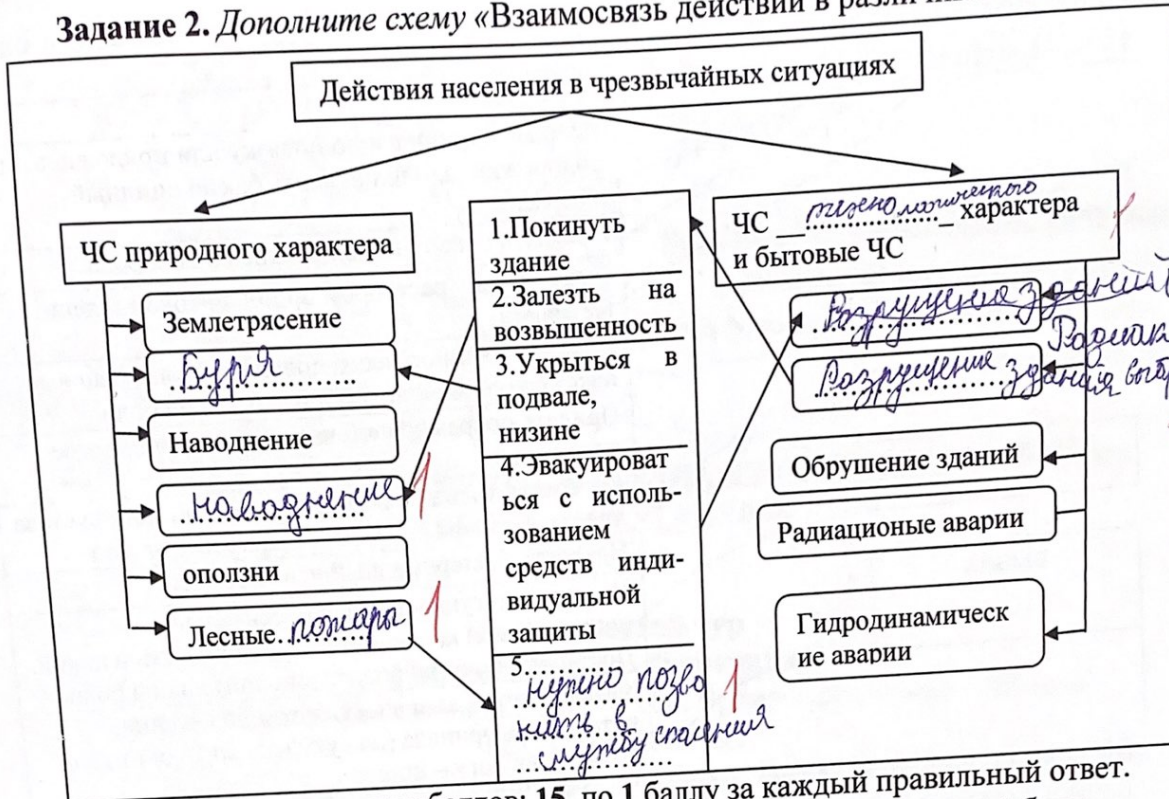 Задание 2. Дополните схему «Взаимосвязь действий в
Действия населения в чрезвычайных ситуациях
ЧС природного характера
Землетрясение
Буря
Наводнение
Наводнение
оползни
Лесные пожары
1.Покинуть
здание
2.Залезть на
возвышенность
3.Укрыться в
подвале,
низине
4.Эвакуироват
ься с исполь-
зованием
средств инди-
видуальной
защиты
5.
нужно позво
нить в
службу спасения
ЧС технологического характера
и бытовые ЧС
Разрушение зданий
Разрушение здания
Обрушение зданий
Радиационые аварии
Гидродинамическ
ие аварии
1
1
1
1
15, по 1 баллу за каждый правильный ответ.